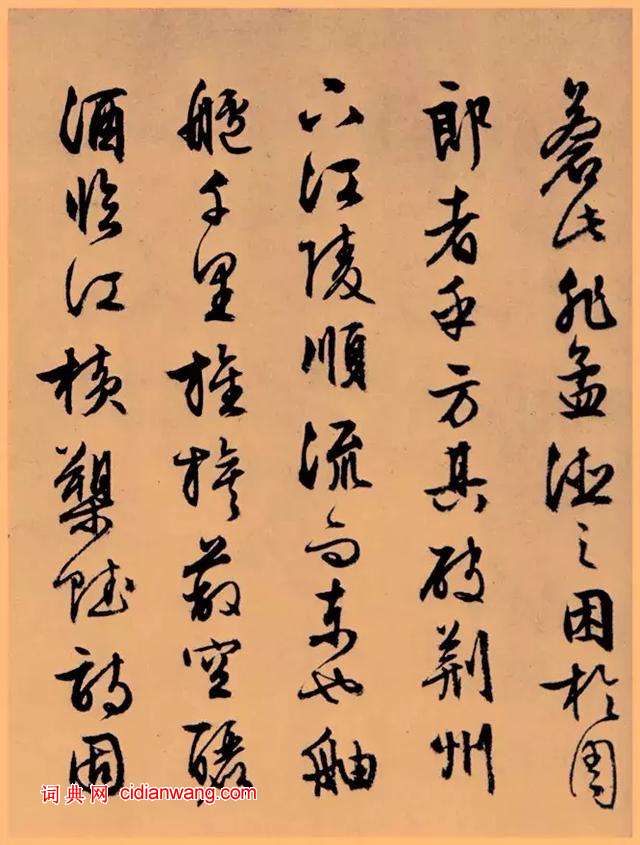 蒼此非孟德之困於周
郎者乎方其破荆州
下江陵順流而東也舳
艫千里旌旗蔽空釃
酒臨江橫槊賦詩固
词典网 cidianwang.com